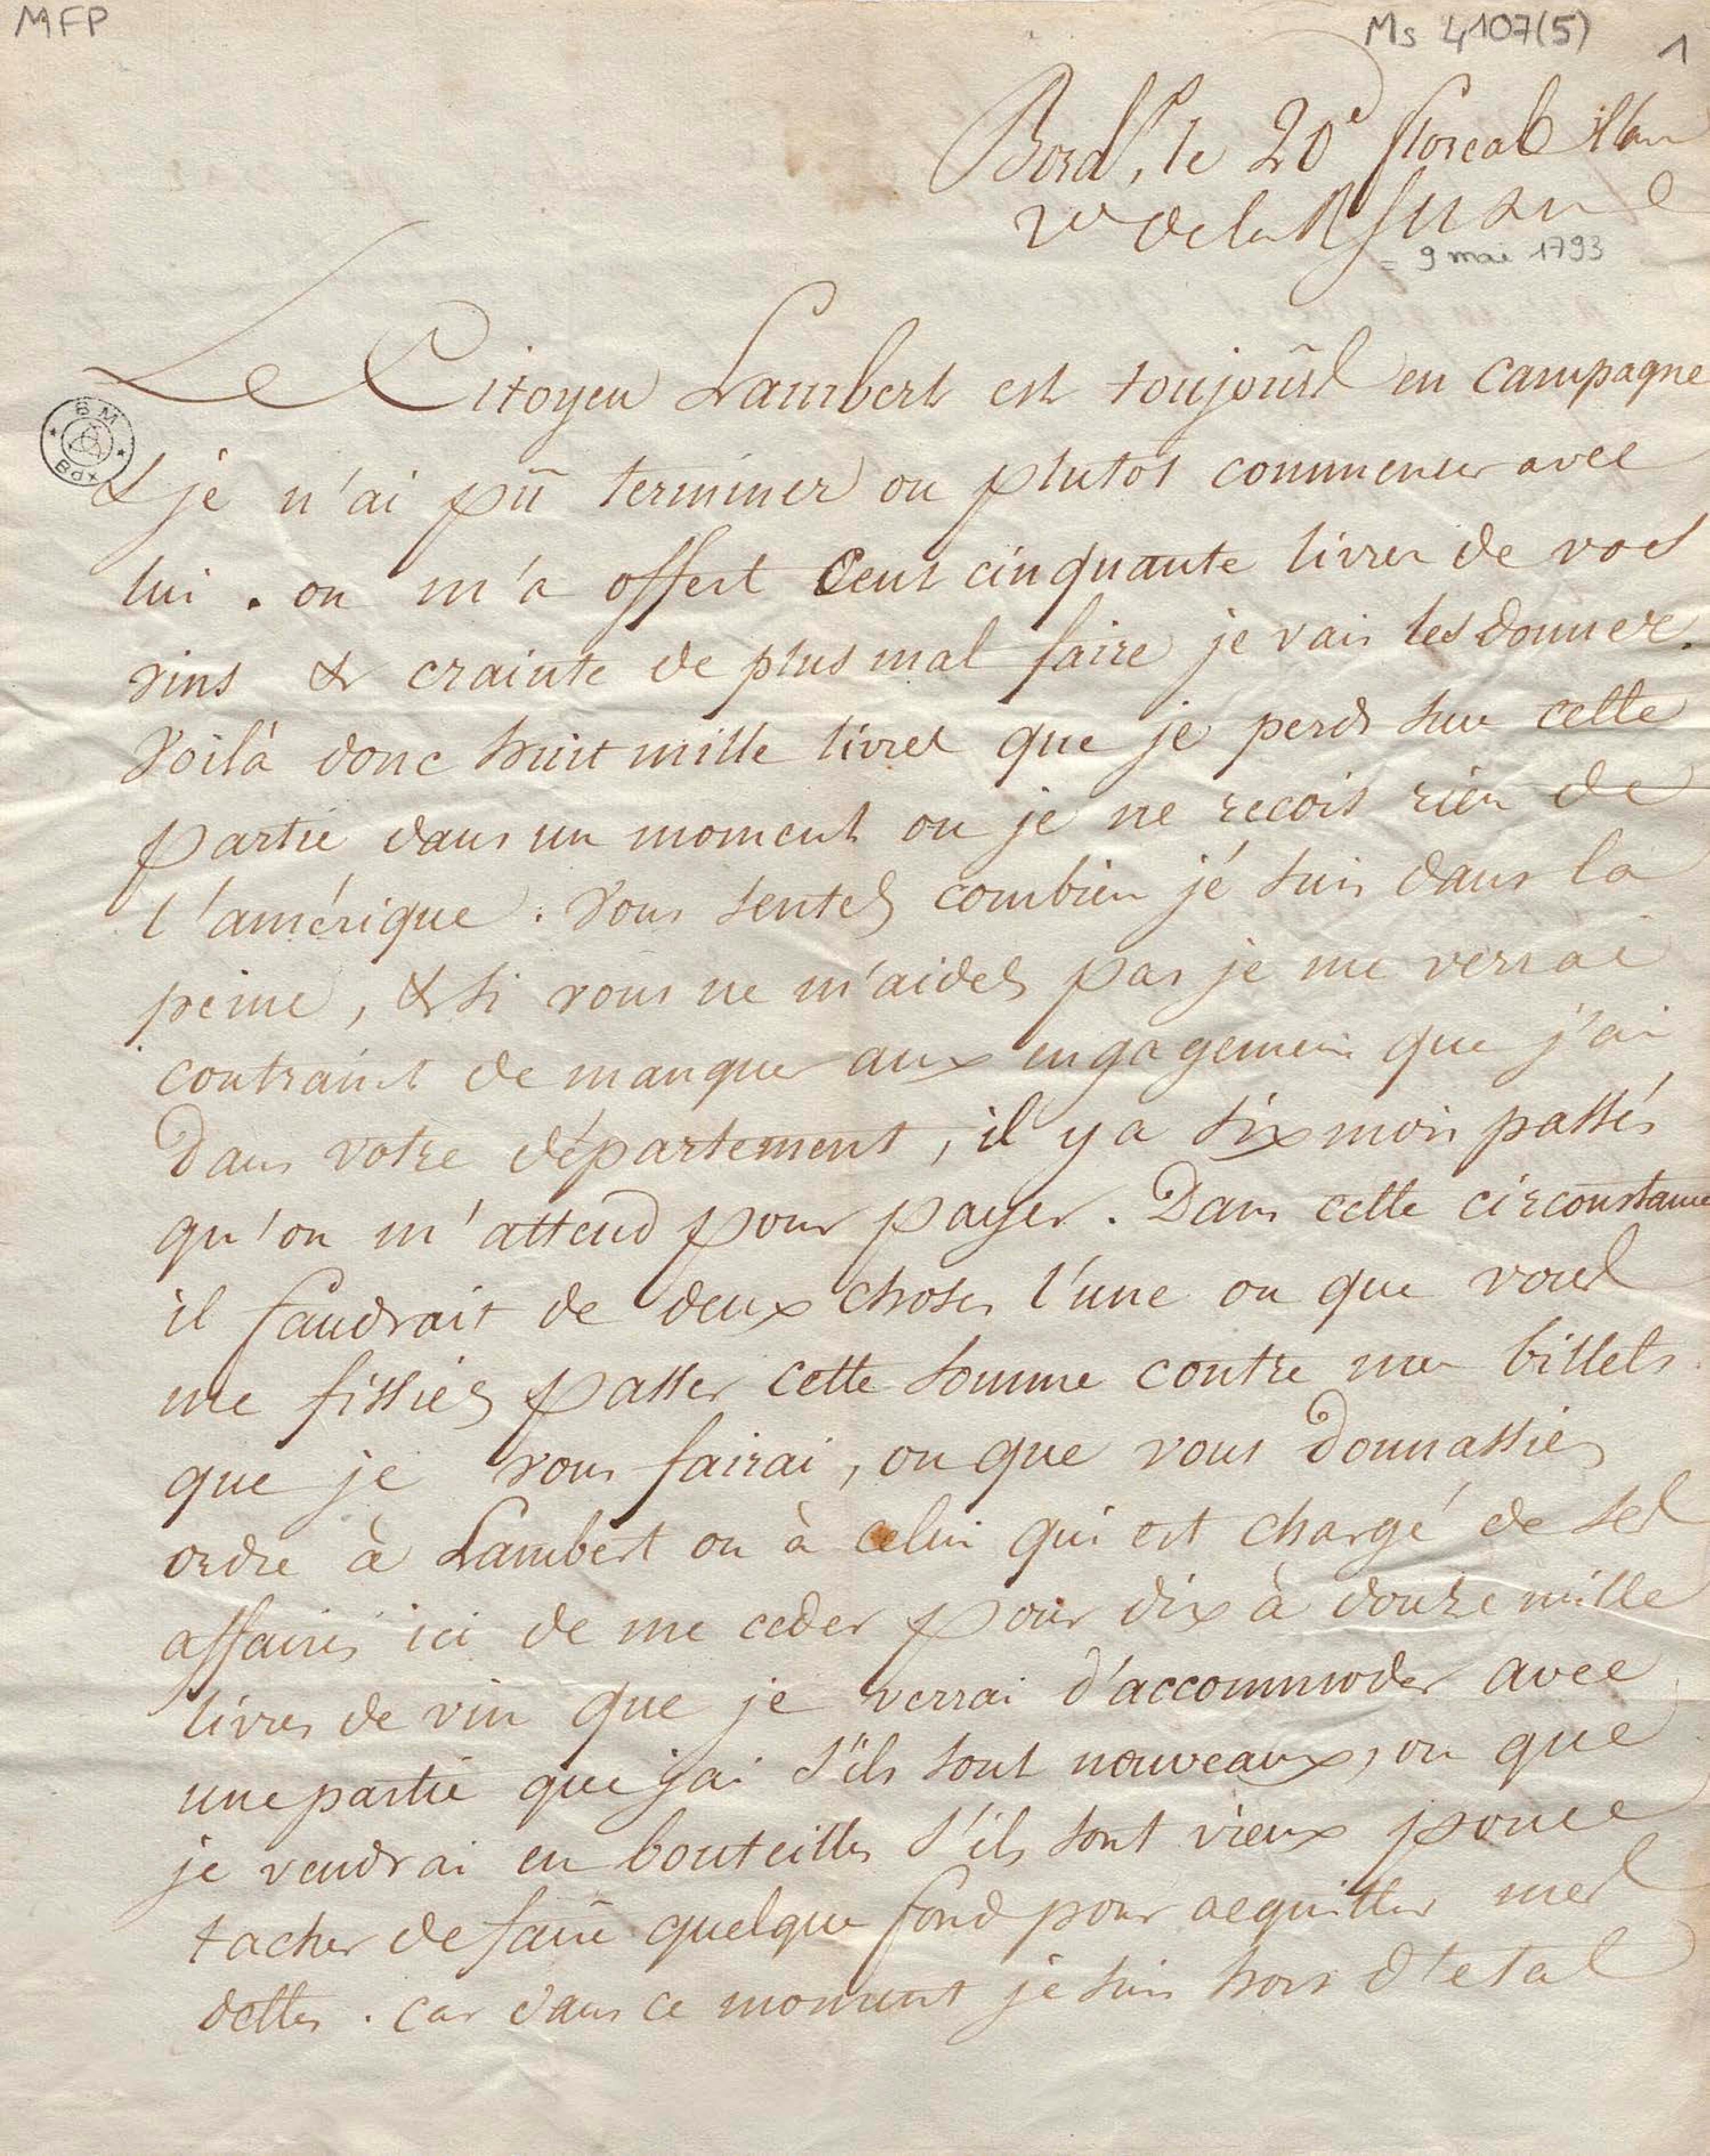 MFP
Ms 4107(5) 1
Bord.x, le 20e floreal l'an
de la R
= 9 mai 1793
Le Citoyen Lambert est toujours en campagne
BM
Bdx
& je n'ai pû terminer ou plutot commencer avec
lui. on m'a offert Cent cinquante livres de vos
vins & crainte de plus mal faire je vais les donner.
Voilà donc huit mille livres que je perds sur cette
partie dans un moment ou je ne recois rien de
l'amérique. Vous sentes combien je suis dans la
peine, & si vous ne m'aides pas je me verrai
contraint de manquer aux engagemens que j'ai
Dans votre département, il y a six mois passés
qu'on m'attend pour payer. Dans cette circonstance
il faudrait de deux choses l'une ou que vous
me fissies passer cette somme contre mes billets
que je vous fairai, ou que vous donnassies
ordre à Lambert ou à celui qui est chargé de ses
affaires ici de me ceder pour dix à douze mille
livres de vin que je verrai d'accommoder avec
une partie que j'ai s'ils sont nouveaux, ou que
je vendrai en bouteilles s'ils sont vieux pour
tacher de faire quelque fond pour acquitter mes
dettes. car dans ce moment je suis hors d'etat